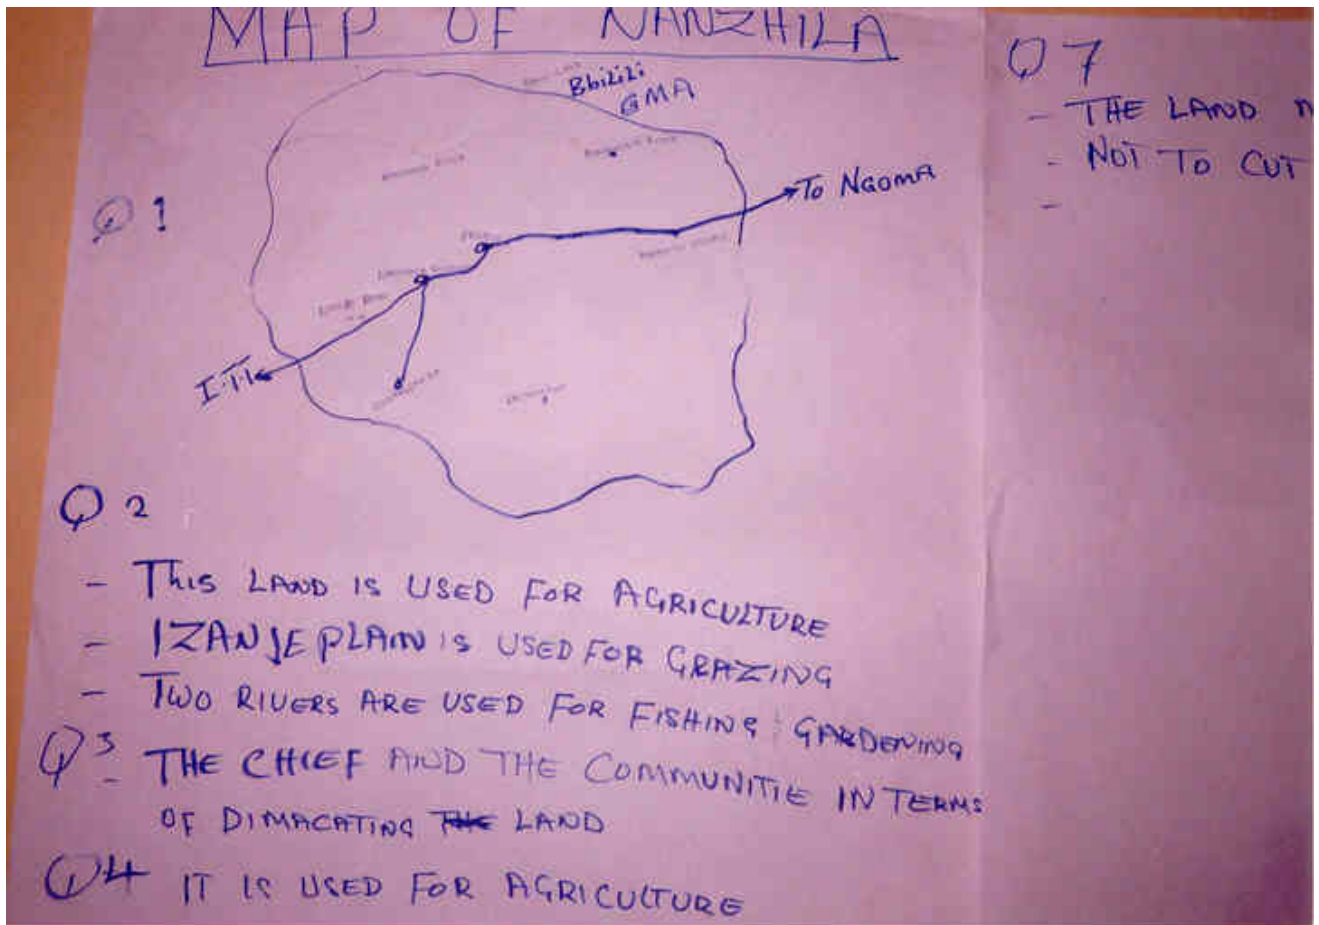 MAP OF NANZHILA
Bbilili
GMA
To NGOMA
Q 1
I.T.T
Q 2
- THIS LAND IS USED FOR AGRICULTURE
- IZANJE PLAIN IS USED FOR GRAZING
- TWO RIVERS ARE USED FOR FISHING : GARDENING
Q3
- THE CHIEF AND THE COMMUNITIE IN TERMS
OF DIMACATING THE LAND
Q4 IT IS USED FOR AGRICULTURE
Q 7
- THE LAND
- NOT TO CUT
-